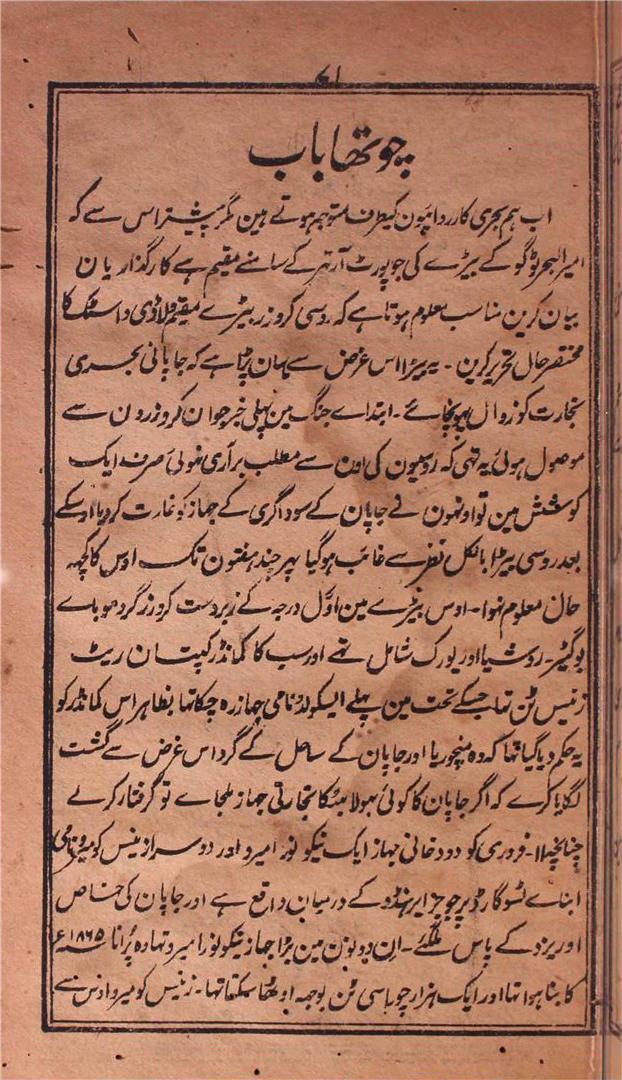 ۷۱
چوتھا باب
اب ہم بحری کارروائیون کیطرف متوجہ ہوتے ہین مگر پیشتر اس سے کہ
امیرالبحر ٹوگو کے بیڑے کی جو پورٹ آرتھر کے سامنے مقیم ہے کارگذاریان
بیان کرین مناسب معلوم ہوتا ہے کہ روسی کروزر بیڑے مقیم ولاڈی واسٹک کا
مختصر حال تحریر کرین ۔ یہ بیڑا اس غرض سے یہان پڑا ہے کہ جاپانی بحری
تجارت کو زوال پہونچائے ۔ ابتداے جنگ مین پہلی خبر جو ان کروزرون سے
موصول ہوئی یہ تھی کہ روسیون کی اون سے مطلب برآری نہوئی صرف ایک
کوشش مین تو اونہون نے جاپان کے سوداگری کے جہاز کو غارت کر دیا اوسکے
بعد روسی بیڑا بالکل نظر سے غائب ہوگیا پھر چند ہفتون تک اوس کا کچھ
حال معلوم نہوا ۔ اوس بیڑے مین اوّل درجہ کے زبردست کروزر گروموباے
بوگیٹر ۔ روشیا اور یورک شامل تھے اور سب کا کمانڈر کپتان ریٹ
زنیس ٹن تھا جسکے تحت مین پہلے ایسکولڈ نامی جہاز رہ چکا تھا بظاہر اس کمانڈر کو
یہ حکم دیا گیا تھا کہ وہ منچوریا اور جاپان کے ساحل کے گرد اس غرض سے گشت
لگایا کرے کہ اگر جاپان کا کوئی بھولا بھٹکا تجارتی جہاز ملجاے تو گرفتار کرلے
چنانچہ ۱۱ ۔ فروری کو دو دخانی جہاز ایک نیکونورا میرو اور دوسرا زنیس کو میرو نامی
ابناے ٹسوگارو پر جو جزایر ہنڈو کے درمیان واقع ہے اور جاپان کی خاص
اور یزو کے پاس ملگئے ۔ ان دونون مین بڑا جہاز نیکونورا میرو تھا وہ پُرانا سنہ ۱۸۶۵ء
کا بنا ہوا تھا اور ایک ہزار چوراسی ٹن بوجھ اوٹھا سکتا تھا ۔ زنیس کو میرو اوس سے